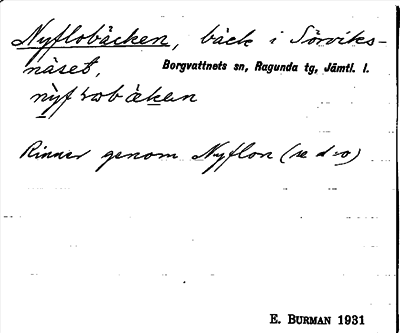 Nyflobäcken, bäck i Sörviks-
näset, Borgvattnets sn, Ragunda tg, Jämtl. l.
Rinner genom Nyflon (se d:o)
E. BURMAN 1931